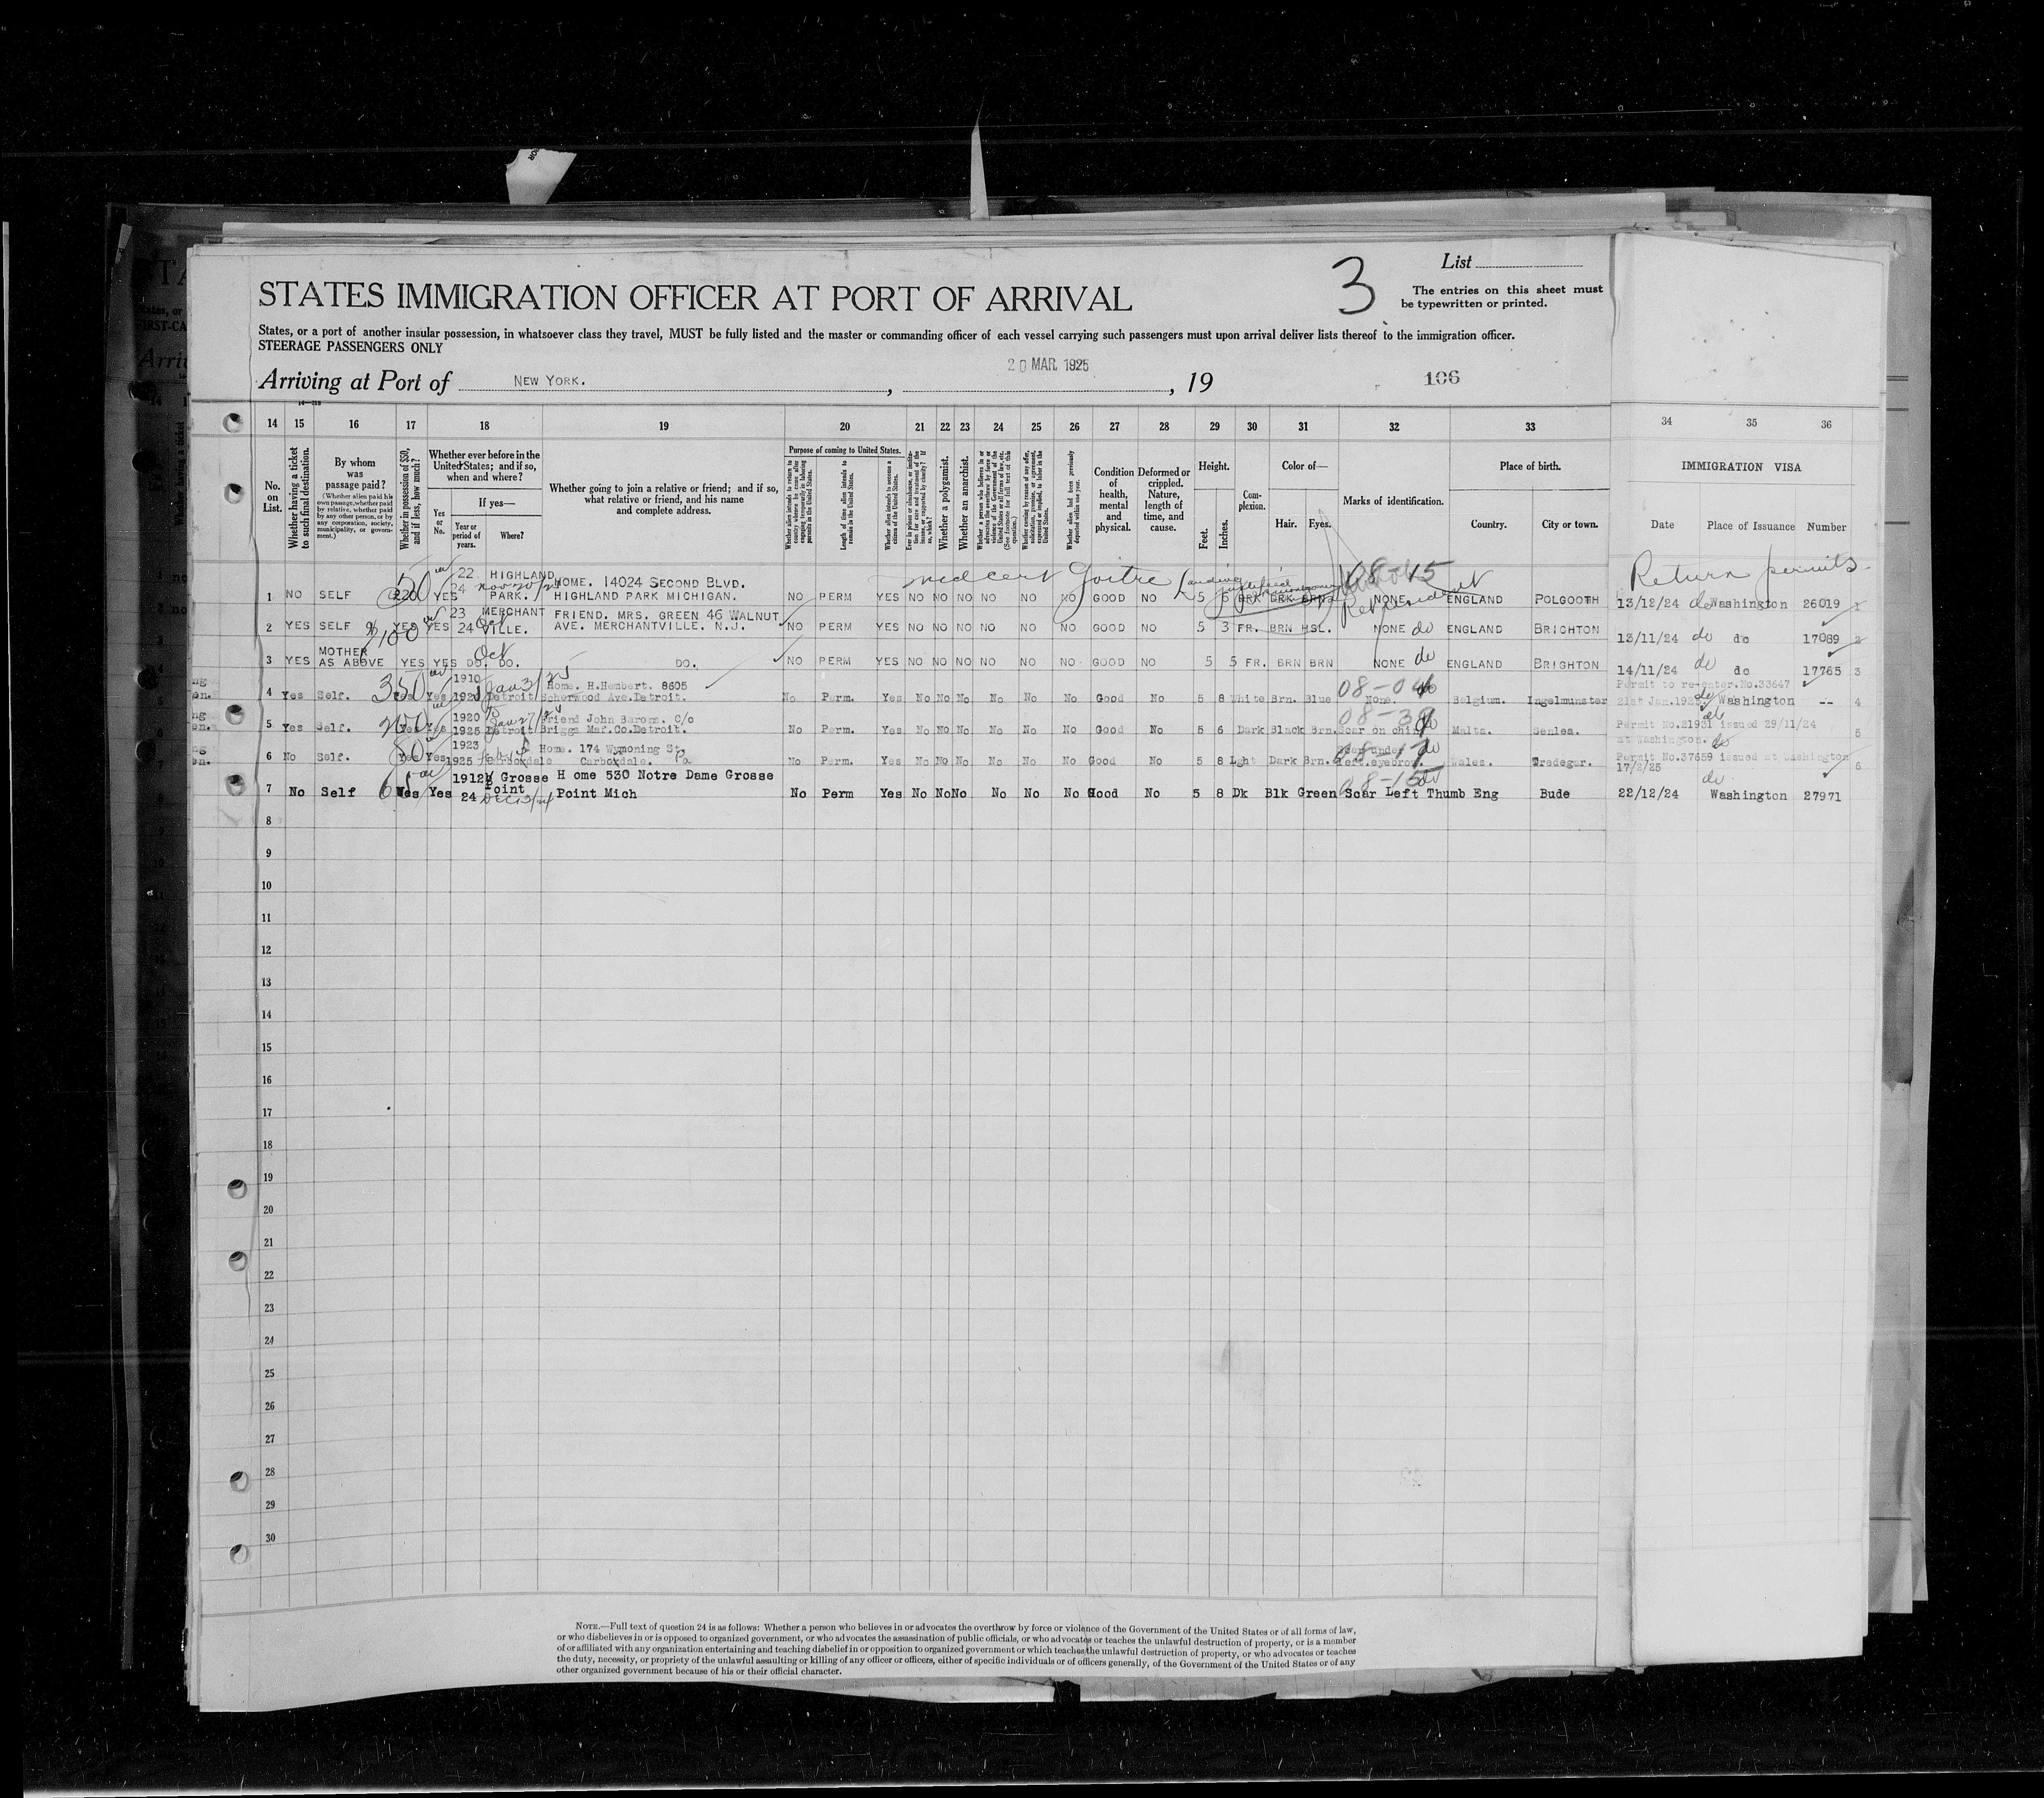 List
3
The entries on this sheet must
be typewritten or printed.
STATES IMMIGRATION OFFICER AT PORT OF ARRIVAL
States, or a port of another insular possession, in whatsoever class they travel, MUST be fully listed and the master or commanding officer of each vessel carrying such passengers must upon arrival deliver lists thereof to the immigration officer.
STEERAGE PASSENGERS ONLY
20 MAR. 1925
Arriving at Port of NEW YORK. , 19
106
14 15 16 17 18 19 20 21 22 23 24 25 26 27 28 29 30 31 32 33 34 35 36
No. on List.
Whether having a ticket to such final destination.
By whom was passage paid?
(Whether alien paid his own passage, whether paid by relative, whether paid by any other person, or by any corporation, society, municipality, or government.)
Whether in possession of $50, and if less, how much?
Whether ever before in the United States; and if so, when and where?
Yes or No.
If yes—
Year or period of years.
Where?
Whether going to join a relative or friend; and if so, what relative or friend, and his name and complete address.
Purpose of coming to United States.
Length of time alien intends to remain in the United States.
Whether a polygamist.
Whether an anarchist.
Condition of health, mental and physical.
Deformed or crippled. Nature, length of time, and cause.
Height.
Feet. Inches.
Complexion.
Color of—
Hair. Eyes.
Marks of identification.
Place of birth.
Country. City or town.
IMMIGRATION VISA
Date Place of Issuance Number
Return permits
med cert Goitre
1 NO SELF 220 YES 22 24 HIGHLAND PARK. HOME. 14024 SECOND BLVD. HIGHLAND PARK MICHIGAN. NO PERM YES NO NO NO NO NO NO GOOD NO 5 5 DRK DRK BRN NONE ENGLAND POLGOOTH 13/12/24 do Washington 26019 1
2 YES SELF YES YES 23 24 MERCHANT VILLE. FRIEND. MRS. GREEN 46 WALNUT AVE. MERCHANTVILLE. N.J. NO PERM YES NO NO NO NO NO NO GOOD NO 5 3 FR. BRN HSL. NONE do ENGLAND BRIGHTON 13/11/24 do do 17089 2
3 YES MOTHER AS ABOVE YES YES DO. DO. DO. NO PERM YES NO NO NO NO NO NO GOOD NO 5 5 FR. BRN BRN NONE do ENGLAND BRIGHTON 14/11/24 do do 17765 3
4 Yes Self. 350 Yes Yes 1910 Detroit Home. H.Hembert. 8605 Scherwood Ave.Detroit. No Perm. Yes No No No No No No Good No 5 8 White Brn. Blue None. Belgium. Ingelmunster Permit to re-enter.No.33647 Washington -- 4
5 Yes Self. 200 Yes Yes 1920 1925 Detroit Friend John Barons. C/o Briggs Maf.Co.Detroit. No Perm. Yes No No No No No No Good No 5 6 Dark Black Brn. Scar on chin Malta. Senlea. Permit No.21931 issued 29/11/24 at Washington. do 5
6 No Self. 80 Yes Yes 1923 1925 Carbondale Home. 174 Wymoning St, Carbondale. Pa. No Perm. Yes No No No No No No Good No 5 8 Lght Dark Brn. Scar under left.eyebrow. do Wales. Tredegar. Permit No.37659 issued at Washington 17/2/25 6
7 No Self 65 Yes Yes 1912 24 Grosse Point H ome 530 Notre Dame Grosse Point Mich No Perm Yes No No No No No No Good No 5 8 Dk Blk Green Scar Left Thumb Eng Bude 22/12/24 do Washington 27971
8
9
10
11
12
13
14
15
16
17
18
19
20
21
22
23
24
25
26
27
28
29
30
NOTE.—Full text of question 24 is as follows: Whether a person who believes in or advocates the overthrow by force or violence of the Government of the United States or of all forms of law,
or who disbelieves in or is opposed to organized government, or who advocates the assassination of public officials, or who advocates or teaches the unlawful destruction of property, or is a member
of or affiliated with any organization entertaining and teaching disbelief in or opposition to organized government or which teaches the unlawful destruction of property, or who advocates or teaches
the duty, necessity, or propriety of the unlawful assaulting or killing of any officer or officers, either of specific individuals or of officers generally, of the Government of the United States or of any
other organized government because of his or their official character.